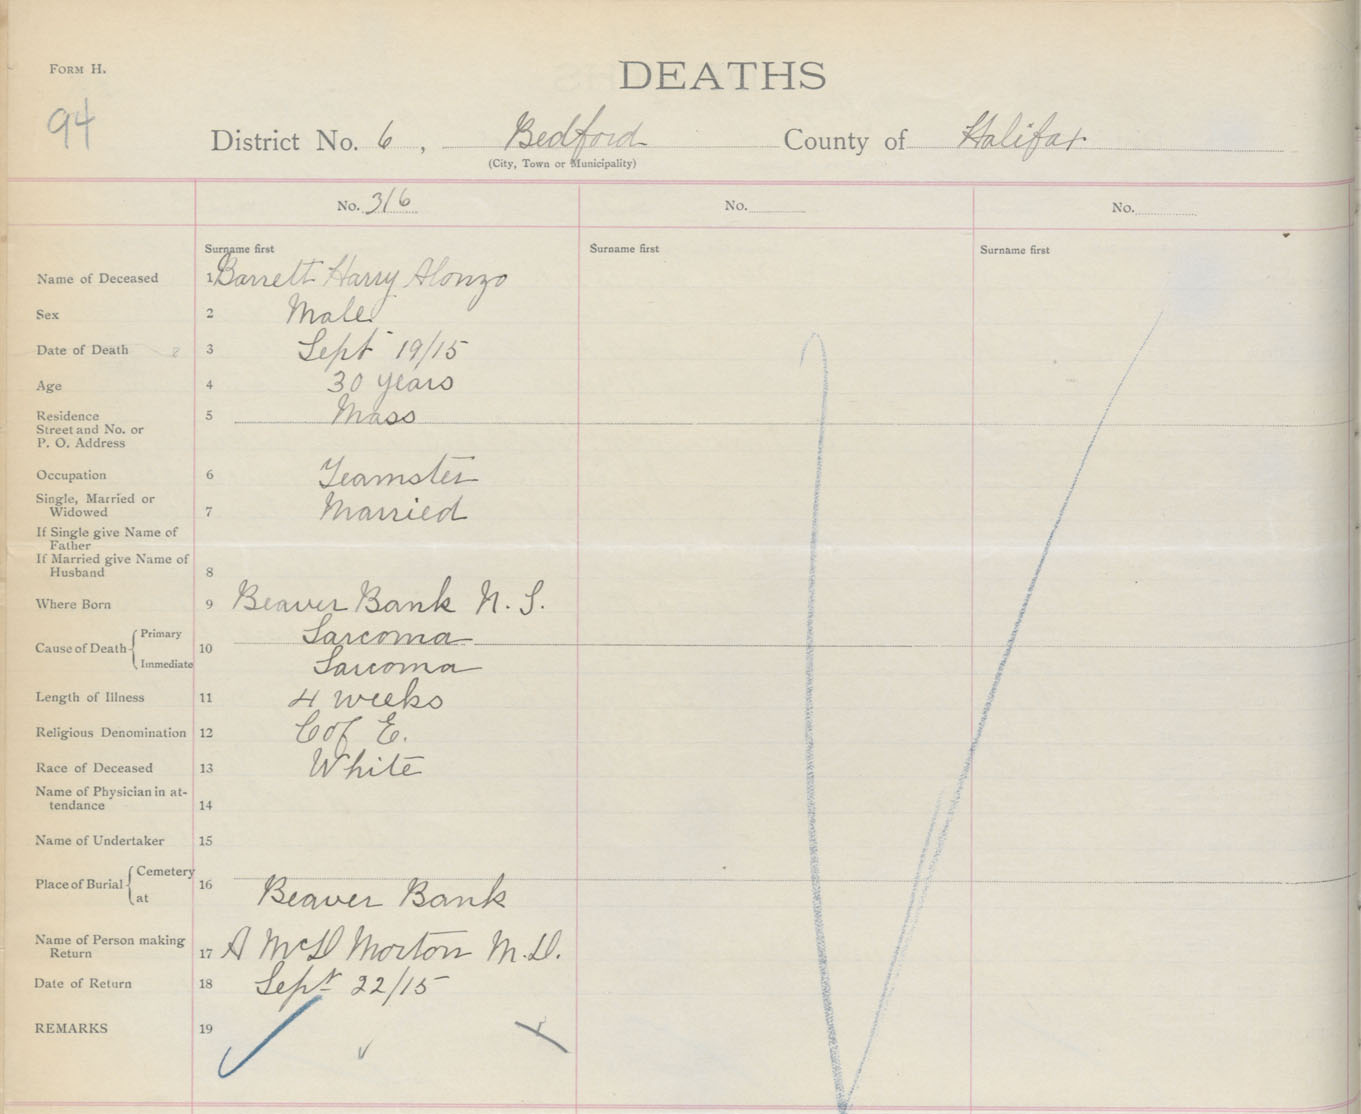 FORM H.
DEATHS
94
District No. 6, Bedford County of Halifax
(City, Town or Municipality)
No. 316 No. No.
Surname first Surname first Surname first
Name of Deceased 1 Barrett Harry Alonzo
Sex 2 Male
Date of Death 3 Sept 19/15
Age 4 30 years
Residence 5 Mass
Street and No. or
P. O. Address
Occupation 6 Teamster
Single, Married or
Widowed 7 Married
If Single give Name of
Father
If Married give Name of
Husband 8
Where Born 9 Beaver Bank N. S.
Cause of Death Primary 10 Sarcoma
Immediate Sarcoma
Length of Illness 11 4 weeks
Religious Denomination 12 C of E.
Race of Deceased 13 White
Name of Physician in at-
tendance 14
Name of Undertaker 15
Place of Burial Cemetery 16
at Beaver Bank
Name of Person making
Return 17 A McD Morton M.D.
Date of Return 18 Sept 22/15
REMARKS 19